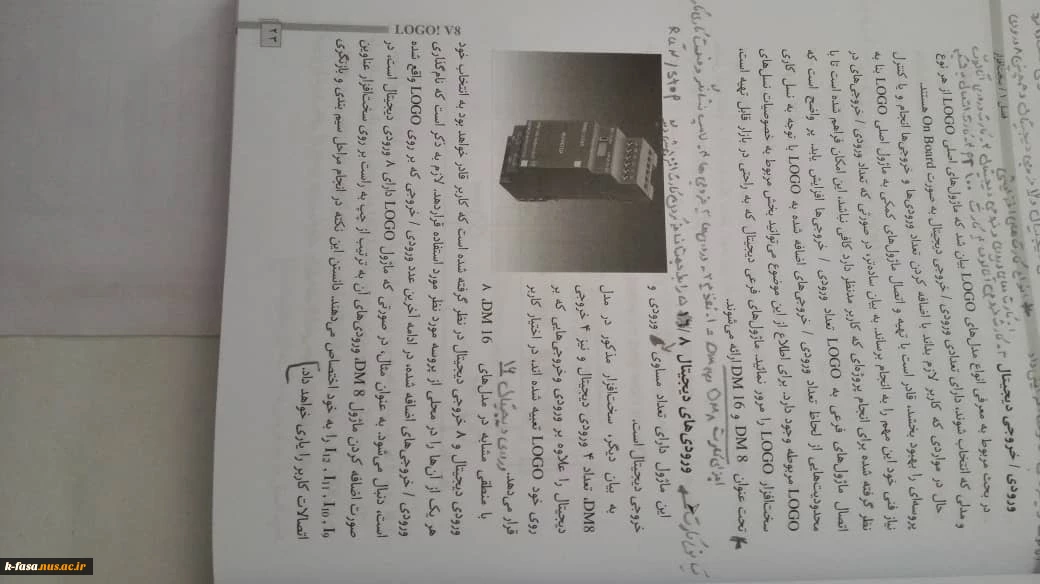 LOGO! V8
۲۳
ورودی / خروجی دیجیتال
در بحث مربوط به معرفی انواع مدل‌های LOGO بیان شد که ماژول‌های اصلی LOGO از هر نوع
و مدلی که انتخاب شوند، دارای تعدادی ورودی / خروجی دیجیتال به صورت On Board هستند.
حال در مواردی که کاربر لازم بداند، با اضافه کردن تعداد ورودی‌ها و خروجی‌ها انجام و یا کنترل
پروسه‌ای را بهبود بخشد، قادر است با تهیه و اتصال ماژول‌های کمکی به ماژول اصلی LOGO بنا به
نیاز فنی خود این مهم را به انجام برساند. به بیان ساده‌تر، در صورتی که تعداد ورودی / خروجی‌های در
نظر گرفته شده برای انجام پروژه‌ای که کاربر مدنظر دارد کافی نباشد، این امکان فراهم شده است تا با
اتصال ماژول‌های فرعی به LOGO تعداد ورودی / خروجی‌ها افزایش یابد. پر واضح است که
محدودیت‌هایی از لحاظ تعداد ورودی / خروجی‌های اضافه شده به LOGO با توجه به نسل کاری
LOGO مربوطه وجود دارد. برای اطلاع از این موضوع می‌توانید بخش مربوط به خصوصیات نسل‌های
سخت‌افزار LOGO را مرور نمائید. ماژول‌های فرعی دیجیتال که به راحتی در بازار قابل تهیه است،
تحت عنوان DM 8 و DM 16 ارائه می‌شوند.
RUN/STOP
ورودی‌های دیجیتال ۸/۱۶
این ماژول دارای تعداد مساوی ورودی و
خروجی دیجیتال است.
به بیان دیگر، سخت‌افزار مذکور در مدل
DM8، تعداد ۴ ورودی دیجیتال و نیز ۴ خروجی
دیجیتال را علاوه بر ورودی وخروجی‌هایی که بر
روی خود LOGO تعبیه شده اند، در اختیار کاربر
قرار می‌دهد.
با منطقی مشابه در مدل‌های DM 16، ۸
ورودی دیجیتال و ۸ خروجی دیجیتال در نظر گرفته شده است که کاربر قادر خواهد بود به انتخاب خود
هر یک از آن‌ها را در محلی از پروسه مورد نظر مورد استفاده قراردهد. لازم به ذکر است که نام‌گذاری
ورودی / خروجی‌های اضافه شده، در ادامه آخرین عدد ورودی / خروجی که بر روی LOGO واقع شده
است، دنبال می‌شود. به عنوان مثال، در صورتی که ماژول LOGO دارای ۸ ورودی دیجیتال است، در
صورت اضافه کردن ماژول DM 8، ورودی‌های آن به ترتیب از چپ به راست بر روی سخت‌افزار عناوین
I9 ، I10 ، I11 ، I12 را به خود اختصاص می‌دهند. دانستن این نکته در انجام مراحل سیم بندی و بازنگری
اتصالات کاربر را یاری خواهد داد.
k-fasa.nus.ac.ir